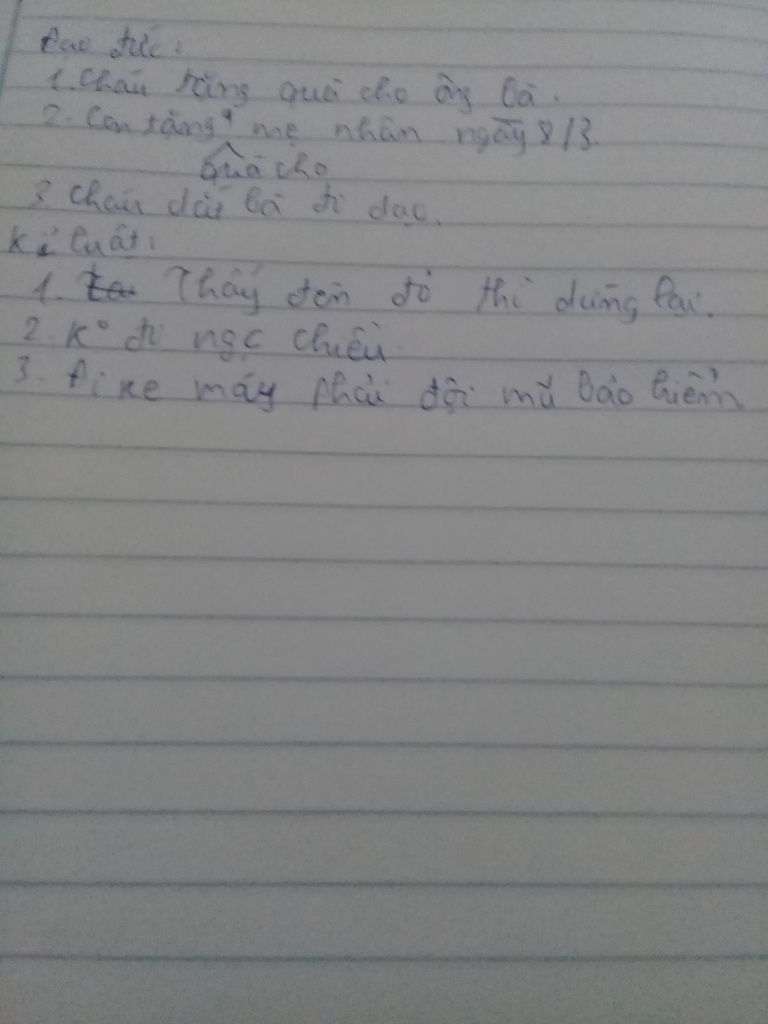 Đạo đức:
1. Cháu tặng quà cho ông bà.
2. Con tặng mẹ nhân ngày 8/3.
quà cho
3 Cháu dắt bà đi dạo.
Kỉ luật:
1. Thấy đèn đỏ thì dừng lại.
2. K° đi ngc chiều
3. Đi xe máy phải đội mũ bảo hiểm